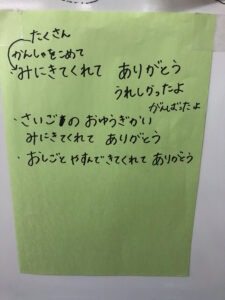 たくさん
かんしゃをこめて
みにきてくれて ありがとう
うれしかったよ
がんばったよ
・さいごの おゆうぎかい
みにきてくれて ありがとう
・おしごと やすんできてくれて ありがとう